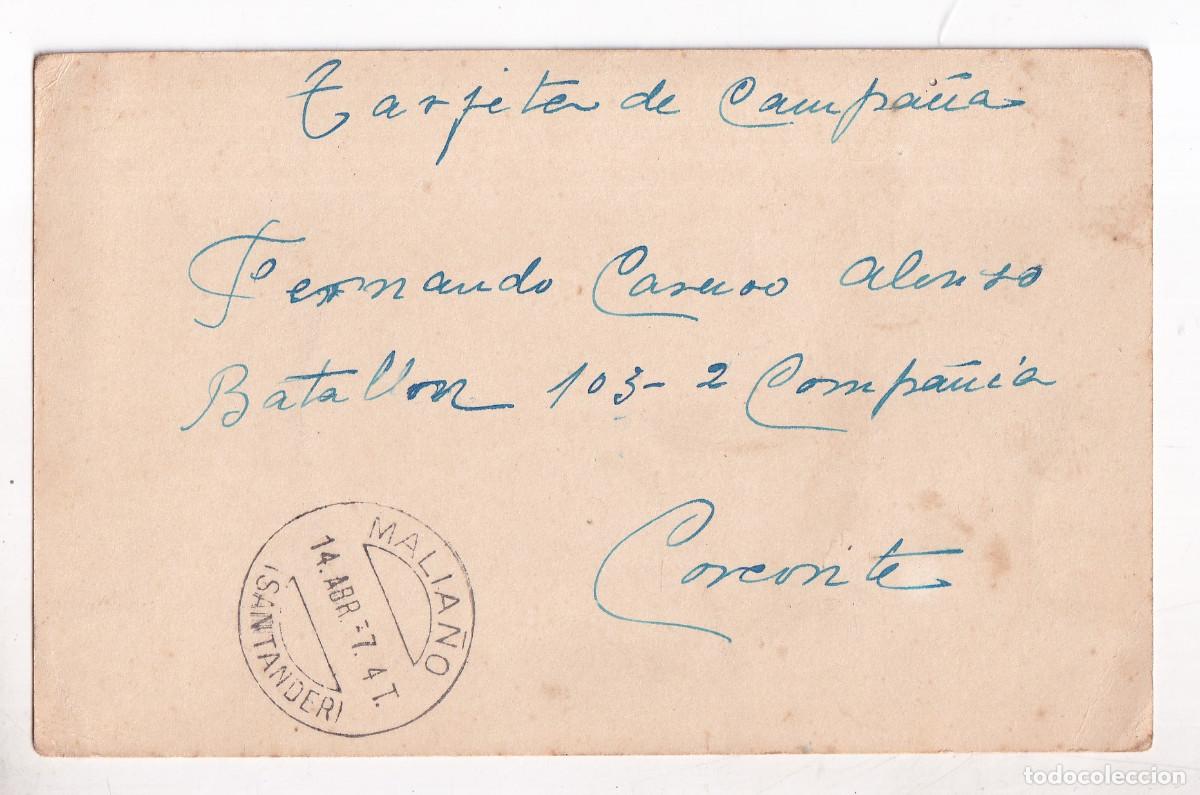 Tarjeta de Campaña
Fernando Caruso Alonso
Batallon 103-2 Compañia
Corconte
MALIAÑO
14.ABR.37.4T.
(SANTANDER)
todocoleccion